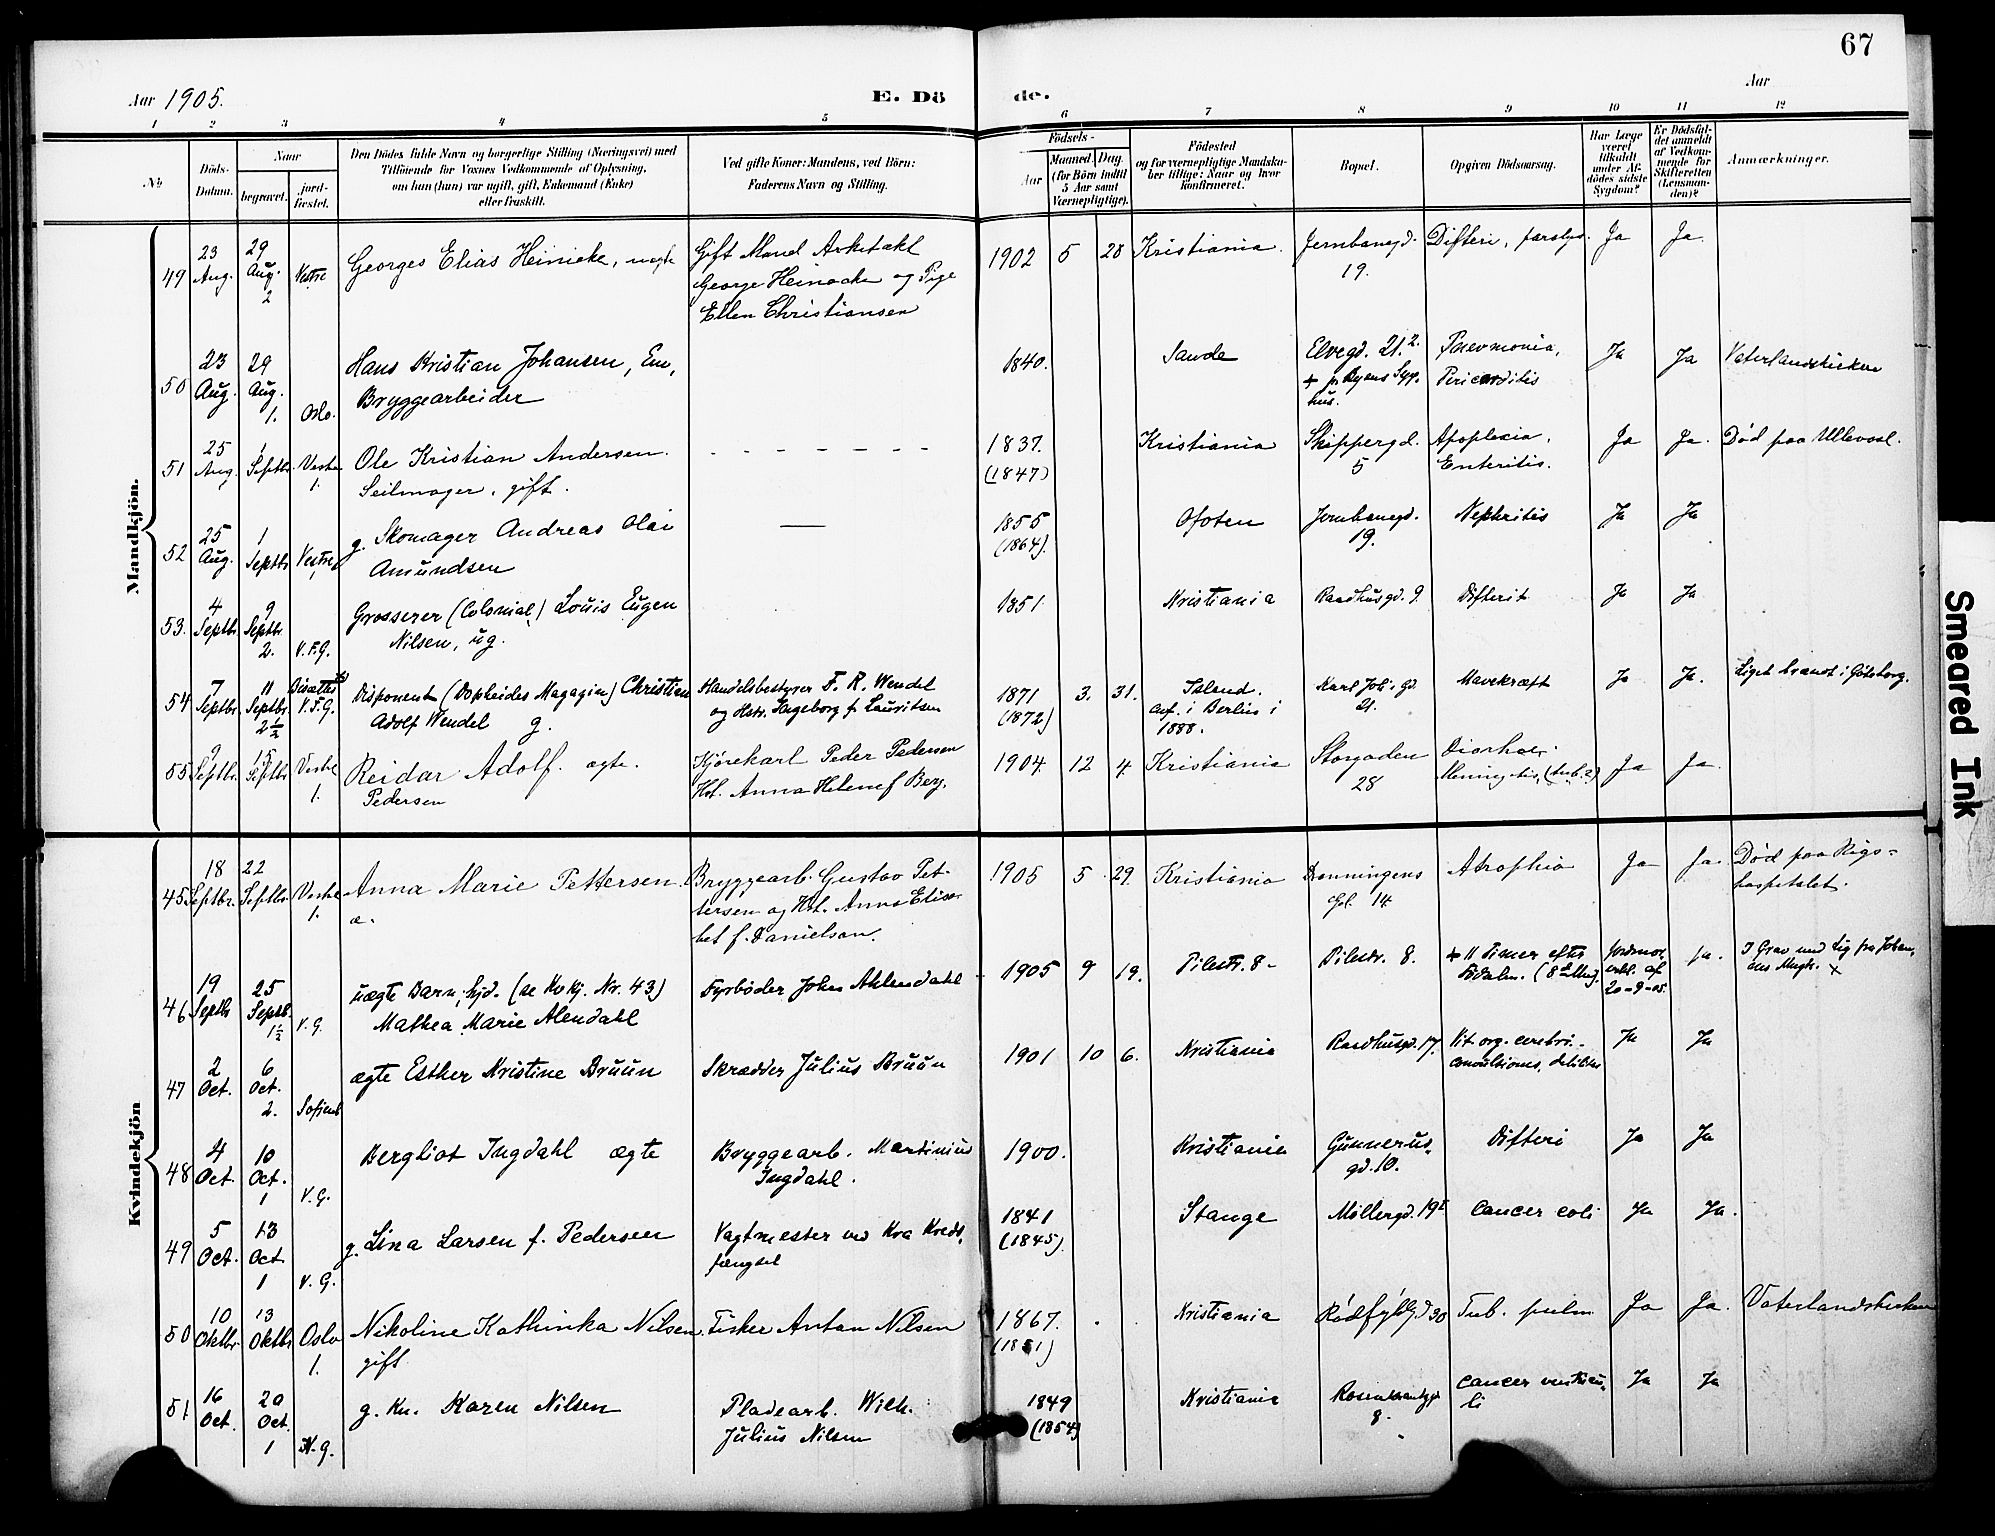 67
Aar 1905.
E. Dö de.
Aar
1 2 3 4 5 6 7 8 9 10 11 12
No
Döds-Datum.
Naar
begravet.
jord-fæstet.
Den Dödes fulde Navn og borgerlige Stilling (Næringsvei) med
Tilföiende for Voxnes Vedkommende af Oplysning,
om han (hun) var ugift, gift, Enkemand (Enke)
eller fraskilt.
Ved gifte Koner: Mandens, ved Börn:
Faderens Navn og Stilling.
Födsels-
Aar
Maaned. Dag.
(for Börn indtil
5 Aar samt
Værnepligtige).
Födested
og for værnepligtige Mandska-
ber tillige: Naar og hvor
konfirmeret.
Bopæl.
Opgiven Dödsaarsag.
Har Læge
været
tilkaldt
under Af-
dödes sidste
Sygdom?
Er Dödsfal-
det anmeldt
af Vedkom-
mende for
Skifteretten
(Lensman-
den)?
Anmærkninger.
Mandkjön.
49 23 Aug. 29 Aug. 2 Vestre Georges Elias Heinicke, uægte
Gift Mand Arkitekt
George Heinecke og Pige
Ellen Christiansen
1902 5 28 Kristiania. Jernbanegd. 19. Difteri, Ja Ja.
50 23 Aug. 29 Aug. 1. Oslo. Hans Kristian Johansen, Em,
Bryggearbeider
1840. Sande Elvegd. 21.2.
+ p. Byens Syge-
hus.
Pnevmonia,
Pericarditis
Ja Ja Vaterlandskirken
51 25 Aug. 1 Septbr. Vestre 1. Ole Kristian Andersen.
Seilmager, gift.
- - - - - - -
1837.
(1847)
Kristiania Skippergd. 5 Apoplexia,
Enteritis.
Ja Ja. Död paa Ullevaal.
52 25 Aug. 1 Septbr Vestre g. Skomager Andreas Olai
Amundsen
—
1855
(1864).
Ofoten Jernbanegd. 19. Nephritis Ja Ja
53. 4 Septbr. 9 Septbr. 2. V.F.G. Grosserer (Colonial) Louis Eugen
Nilsen, ug.
1851 Kristiania Raadhusgd. 9. Difterit Ja Ja
54 7 Septbr. 11 Septbr. 2½ V.F.G. Disponent (Dopleides Magazin) Christian
Adolf Wendel g.
Handelsbestyrer F. R. Wendel
og Hstr. Ingeborg f. Lauritsen
1871
(1872)
3. 31. Island.
Conf. i Berlin i
1888.
Karl Joh.s Gd. 21. Mavekræft Ja Ja. Liget brændt i Göteborg.
55 9 Septbr. 15 Septbr Vestre 1. Reidar Adolf. ægte.
Pedersen
Kjörekarl Peder Pedersen
Hst. Anna Helene f Berg.
1904. 12 4. Kristiania Storgaden 28 Diarhoe,
Meningitis (tub.?)
Ja Ja.
Kvindekjön
45 18 Septbr. 22 Septbr. Vestre 1. Anna Marie Pettersen.
æ.
Bryggearb. Gustav Pet-
tersen og Hst. Anna Elisa-
bet f. Danielson.
1905 5 29. Kristiania Dronningens
Gd. 14.
Atrophia Ja Ja. Död paa Rigs-
hospitalet.
46 19 Septbr 25 Septb. 1½ V.G. uægte Barn, hjd. (se Kvkj. Nr. 43)
Mathea Marie Alendahl
Fyrböder Johan Ahlendahl
1905 9 19. Pilestr. 8- Pilestr. 8. + 11 Timer efter
Födselen. (8de Md.)
Jordmor
erkl. af
20-9-05.
ja. I Grav med Lig fra Johan-
nes Mngh. x
47 2 Oct. 6 Oct. 2. Sofienb ægte Esther Kristine Bruun
Skrædder Julius Bruun
1901 10 6. Kristiania Raadhusgd. 17. Vit. org. cerebri.-
convulsiones,
Ja Ja
48 4 Oct. 10 Oct. 1 V.G. Bergliot Ingdahl ægte
Bryggearb. Martinius
Ingdahl.
1900. Kristiania Gunnerus-
gd. 10.
Difteri Ja Ja
49 5 Oct. 13 Oct 1 V.G. g. Lina Larsen f. Pedersen
Vagtmester ved Kra Kreds-
fængsel
1841
(1845).
Stange Möllergd. 19I Cancer coli Ja Ja.
50 10 Oktbr. 13 Oktbr Oslo 1. Nikoline Kathinka Nilsen,
gift.
Fisker Anton Nilsen
1867.
(1851)
Kristiania Rödfyldgd 30 Tub. pulm Ja Ja. Vaterlandskirken
51 16 Oct. 20 Oct. 1 V.G. g. Kn. Karen Nilsen
Pladearb. Wilh.
Julius Nilsen
1849
(1854)
Kristiania Rosenkrantzgd
8.
Cancer ventricu-
li
Ja Ja
Smeared Ink